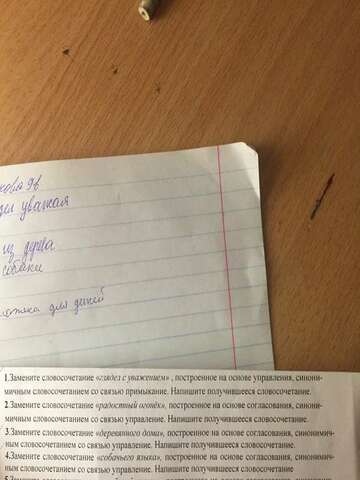 9в
уважая
из дерева
собаки
для детей
1.Замените словосочетание «глядел с уважением» , построенное на основе управления, синони-
мичным словосочетанием со связью примыкание. Напишите получившееся словосочетание.
2.Замените словосочетание «радостный огонёк», построенное на основе согласования, синони-
мичным словосочетанием со связью управление. Напишите получившееся словосочетание.
3.Замените словосочетание «деревянного дома», построенное на основе согласования, синонимич-
ным словосочетанием со связью управление. Напишите получившееся словосочетание.
4.Замените словосочетание «собачьего языка», построенное на основе согласования, синонимич-
ным словосочетанием со связью управление. Напишите получившееся словосочетание